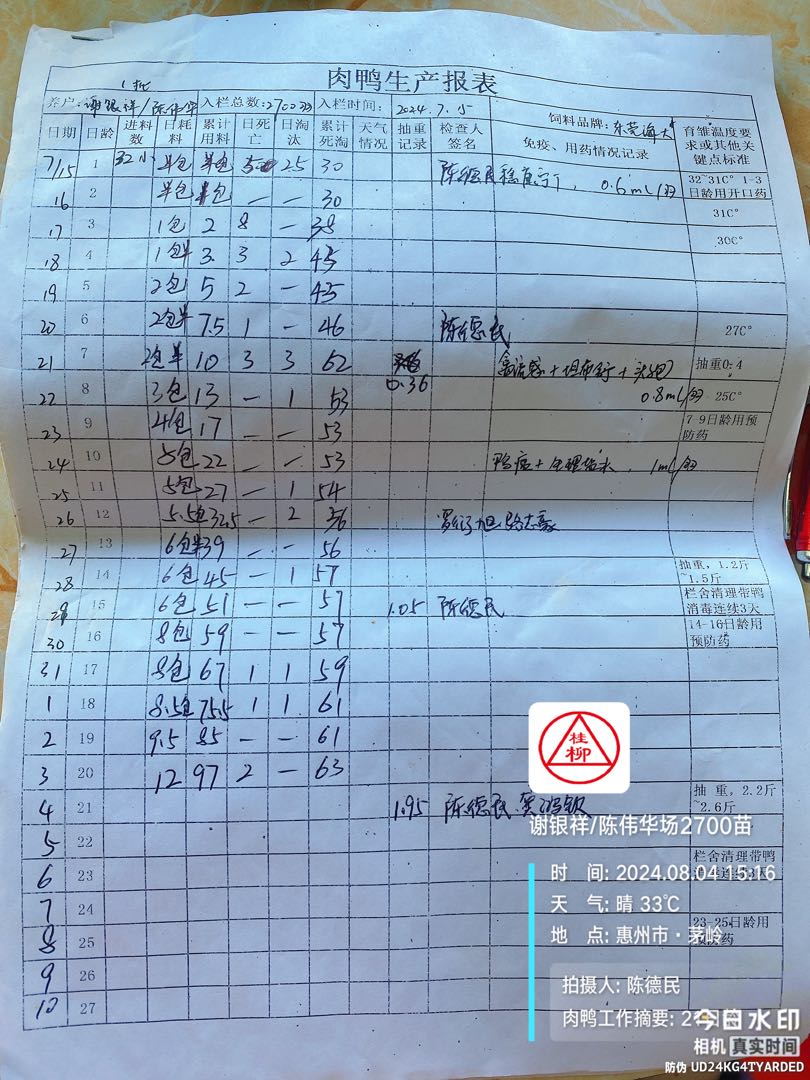 1批
肉鸭生产报表
养户:谢银祥/陈伟华 入栏总数:2700羽 入栏时间: 2024.7.15 饲料品牌:东莞海大
日期 日龄 进料数 日耗料 累计用料 日死亡 日淘汰 累计死淘 天气情况 抽重记录 检查人签名 免疫、用药情况记录 育雏温度要求或其他关键点标准
7/15 1 32 半包 半包 5 25 30 陈德民 0.6mL/羽 32~31C° 1-3日龄用开口药
16 2 半包 — — 30 31C°
17 3 1包 2 8 — 38 30C°
18 4 1包半 3. 3 2 43
19 5 2包 5 2 — 45
20 6 2包半 7.5 1 — 46 陈德民 27C°
21 7 2包半 10 3 3 62 0.36 抽重0.4
22 8 3包 13 — 1 53 0.8mL/羽 25C°
23 9 4包 17 — — 53 7-9日龄用预防药
24 10 5包 22 — — 53 1mL/羽
25 11 5包 27 — 1 54
26 12 5.5包 32.5 — 2 56
27 13 6包半 39 — — 56
28 14 6包 45 — 1 57 抽重, 1.2斤~1.5斤
29 15 6包 51 — — 57 1.05 陈德民 栏舍清理带鸭消毒连续3天
30 16 8包 59 — — 57 14-16日龄用预防药
31 17 8包 67 1 1 59
1 18 8.5包 75.5 1 1 61
2 19 9.5 85 — — 61
3 20 12 97 2 — 63
4 21 1.95 陈德民 抽重, 2.2斤~2.6斤
5 22
6 23 栏舍清理带鸭
7 24
8 25 23-25日龄用预防药
9 26
10 27
桂柳
谢银祥/陈伟华场2700苗
时 间: 2024.08.04 15:16
天 气: 晴 33℃
地 点: 惠州市·茅岭
拍摄人: 陈德民
肉鸭工作摘要: 2
今日水印
相机 真实时间
防伪 UD24KG4TYARDED